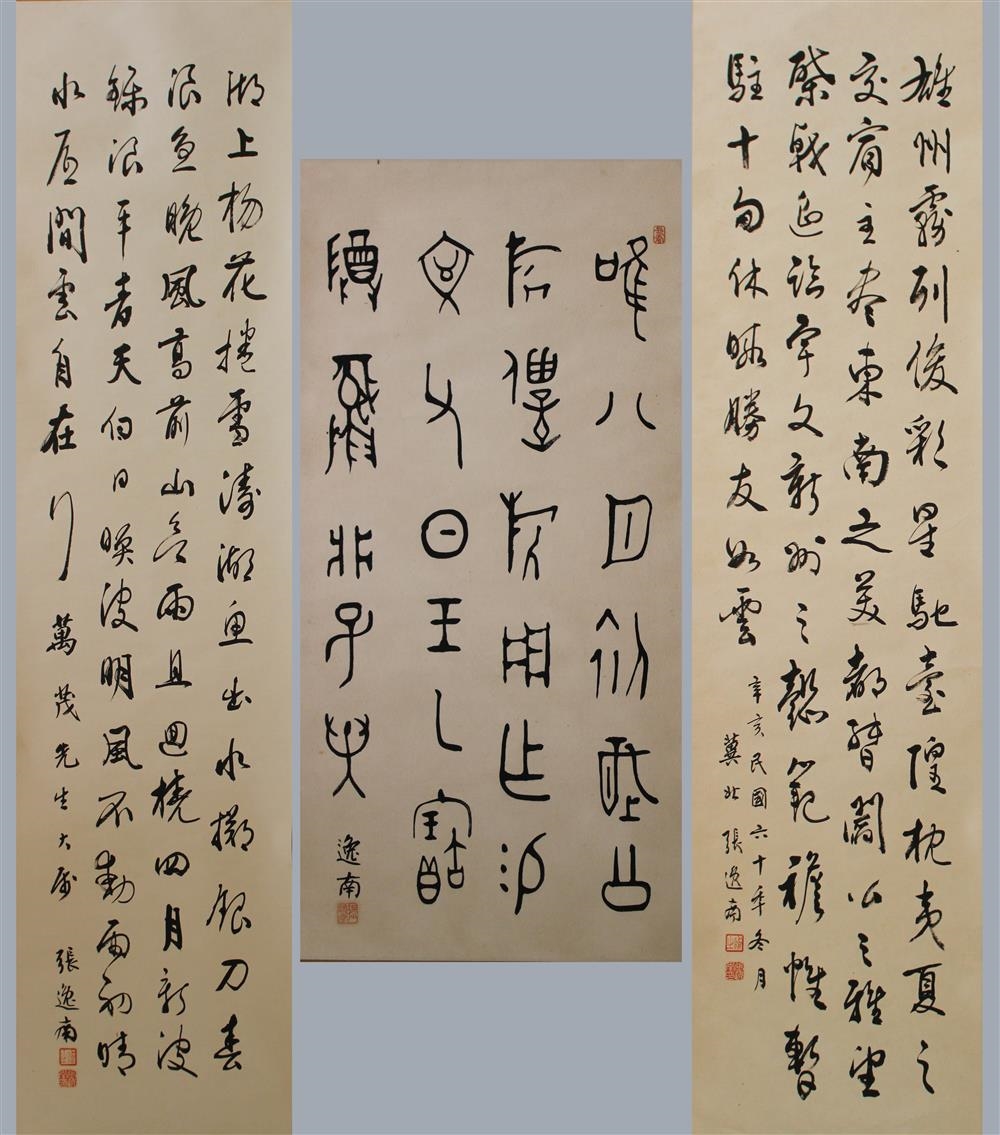 雄州霧列俊彩星馳臺隍枕夷夏之
交賓主盡東南之美都督閻公之雅望
棨戟遙臨宇文新州之懿範襜帷暫
駐十旬休暇勝友如雲
辛亥民國六十年冬月
冀北張逸南
唯八月
用乍
文父日
尊彝
逸南
湖上楊花捲雪濤湖魚出水擲銀刀春
浪急晚風高前山欲雨且迴橈四月新波
浪平青天白日暎波明風不動雨初晴
水底間雲自在行
萬茂先生大屬
張逸南